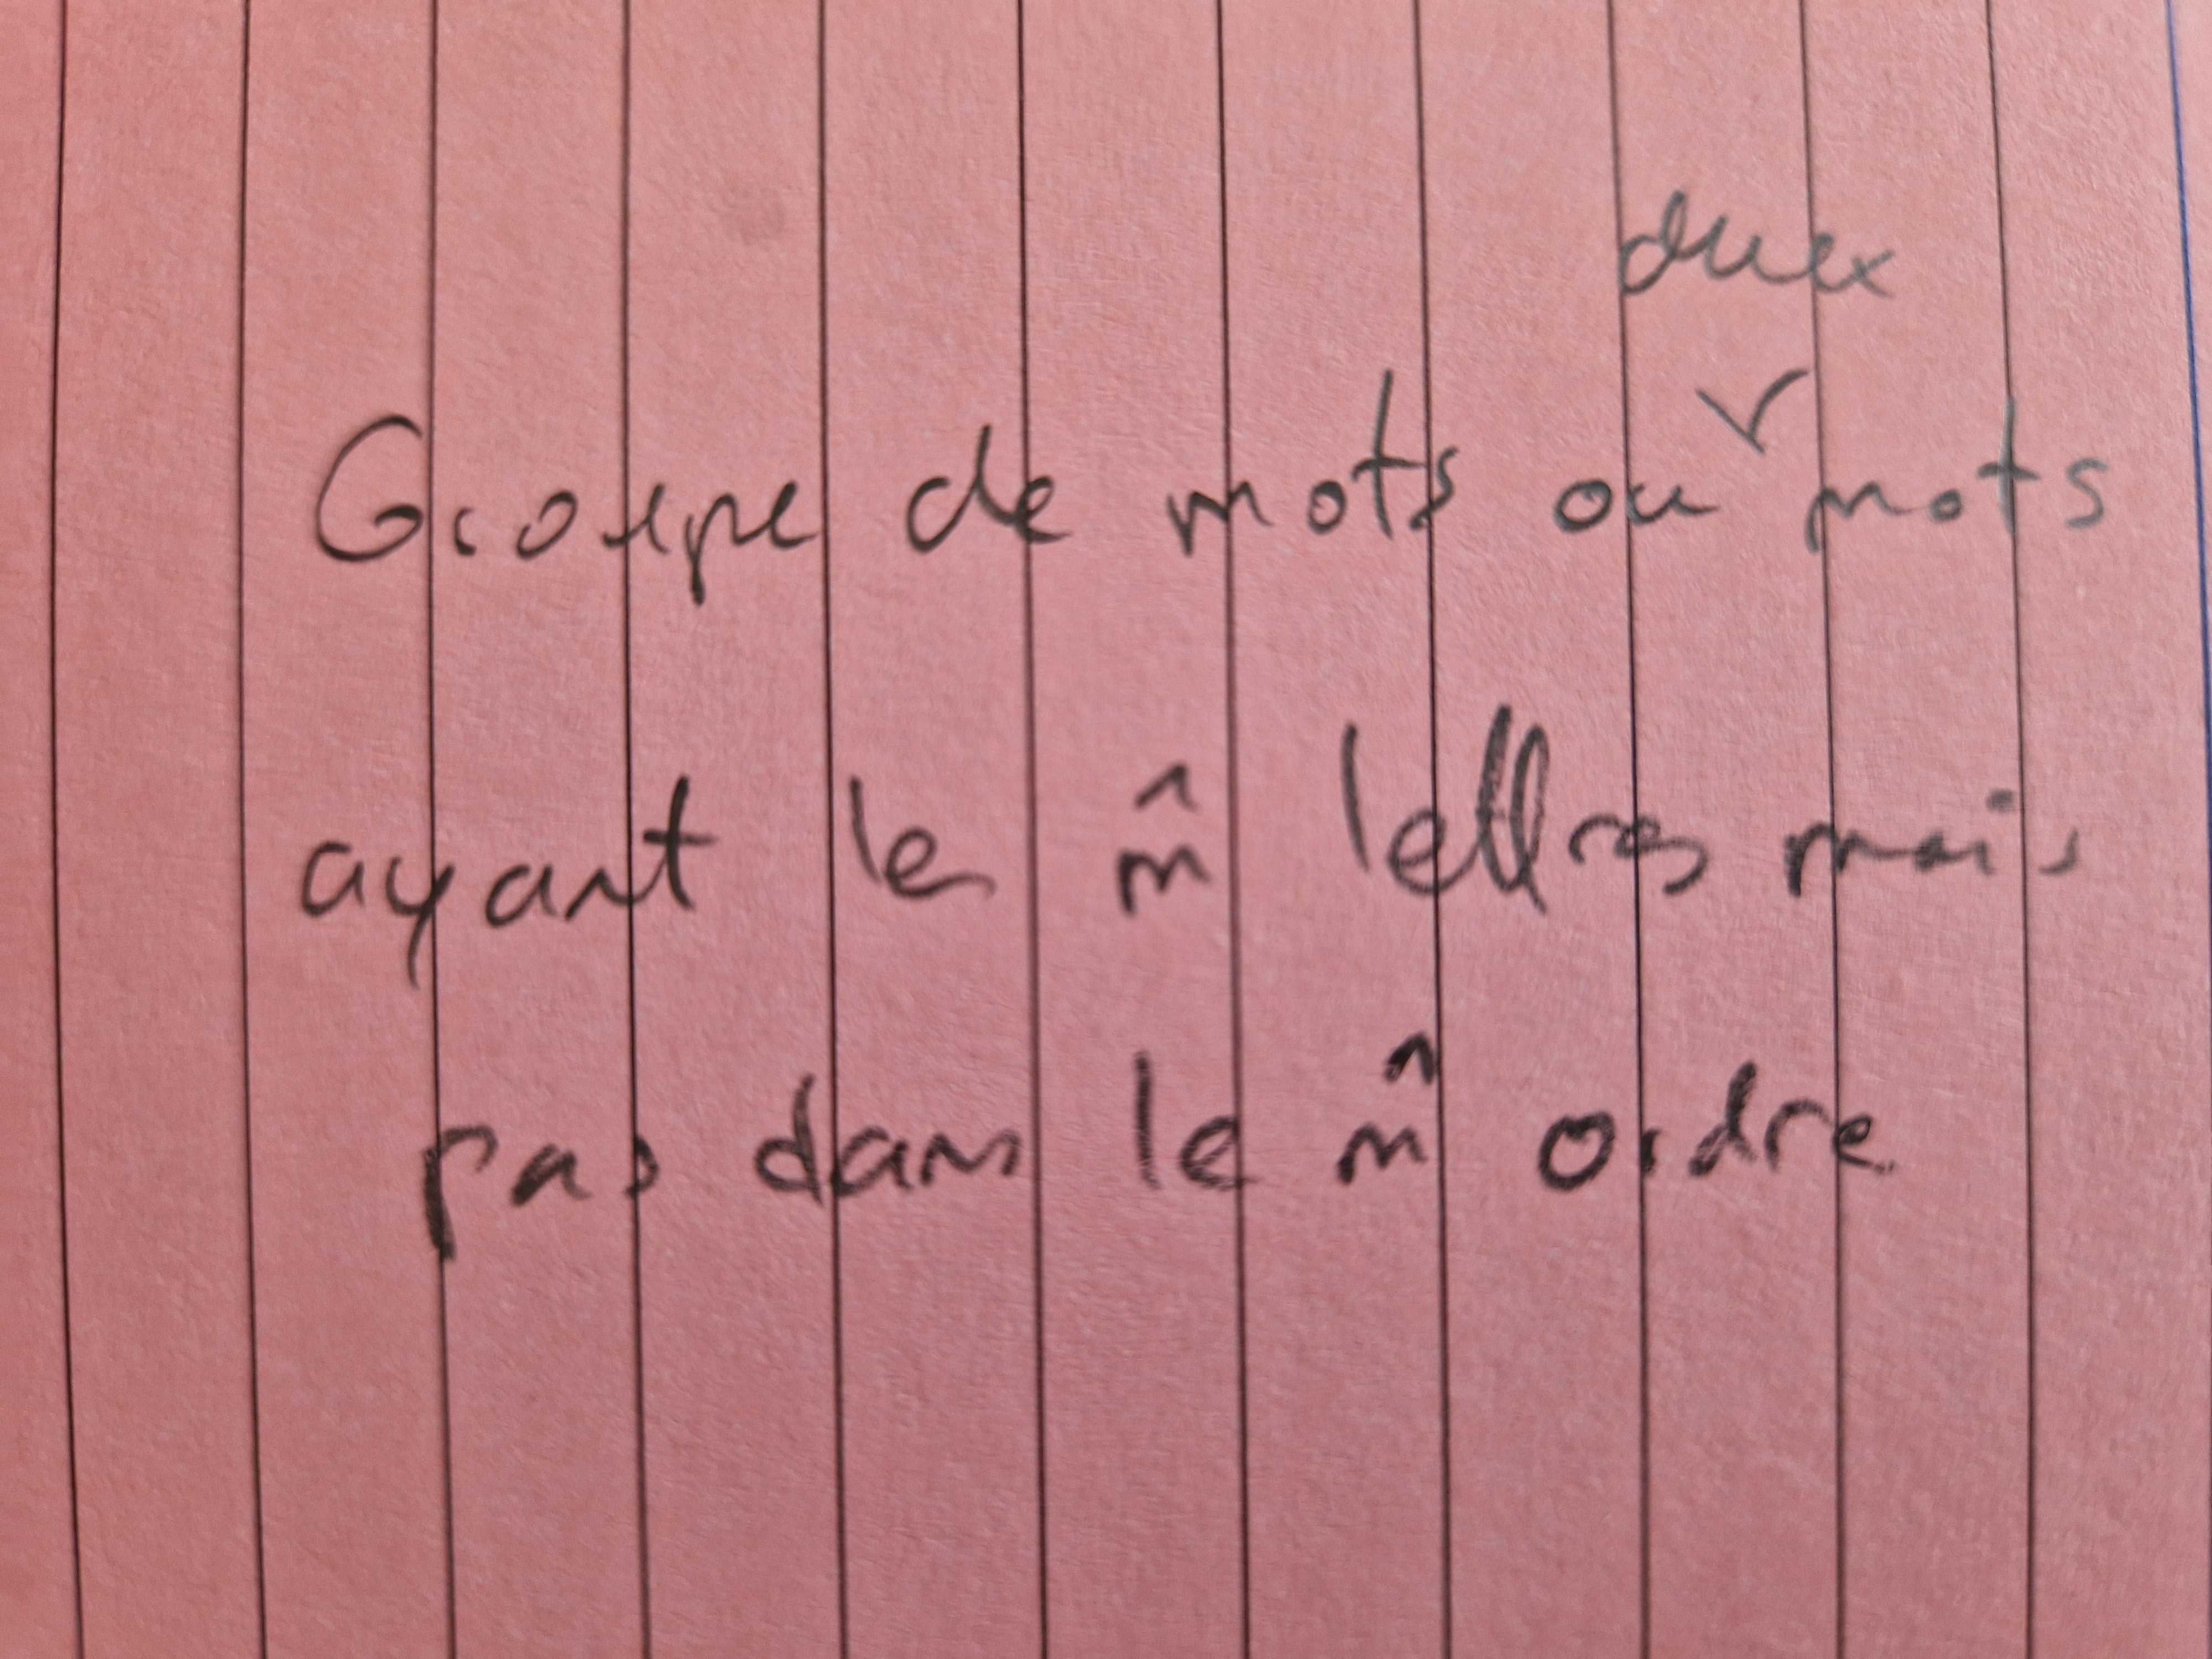 deux
Groupe de mots ou mots
ayant les m̂ lettres mais
pas dans le m̂ ordre